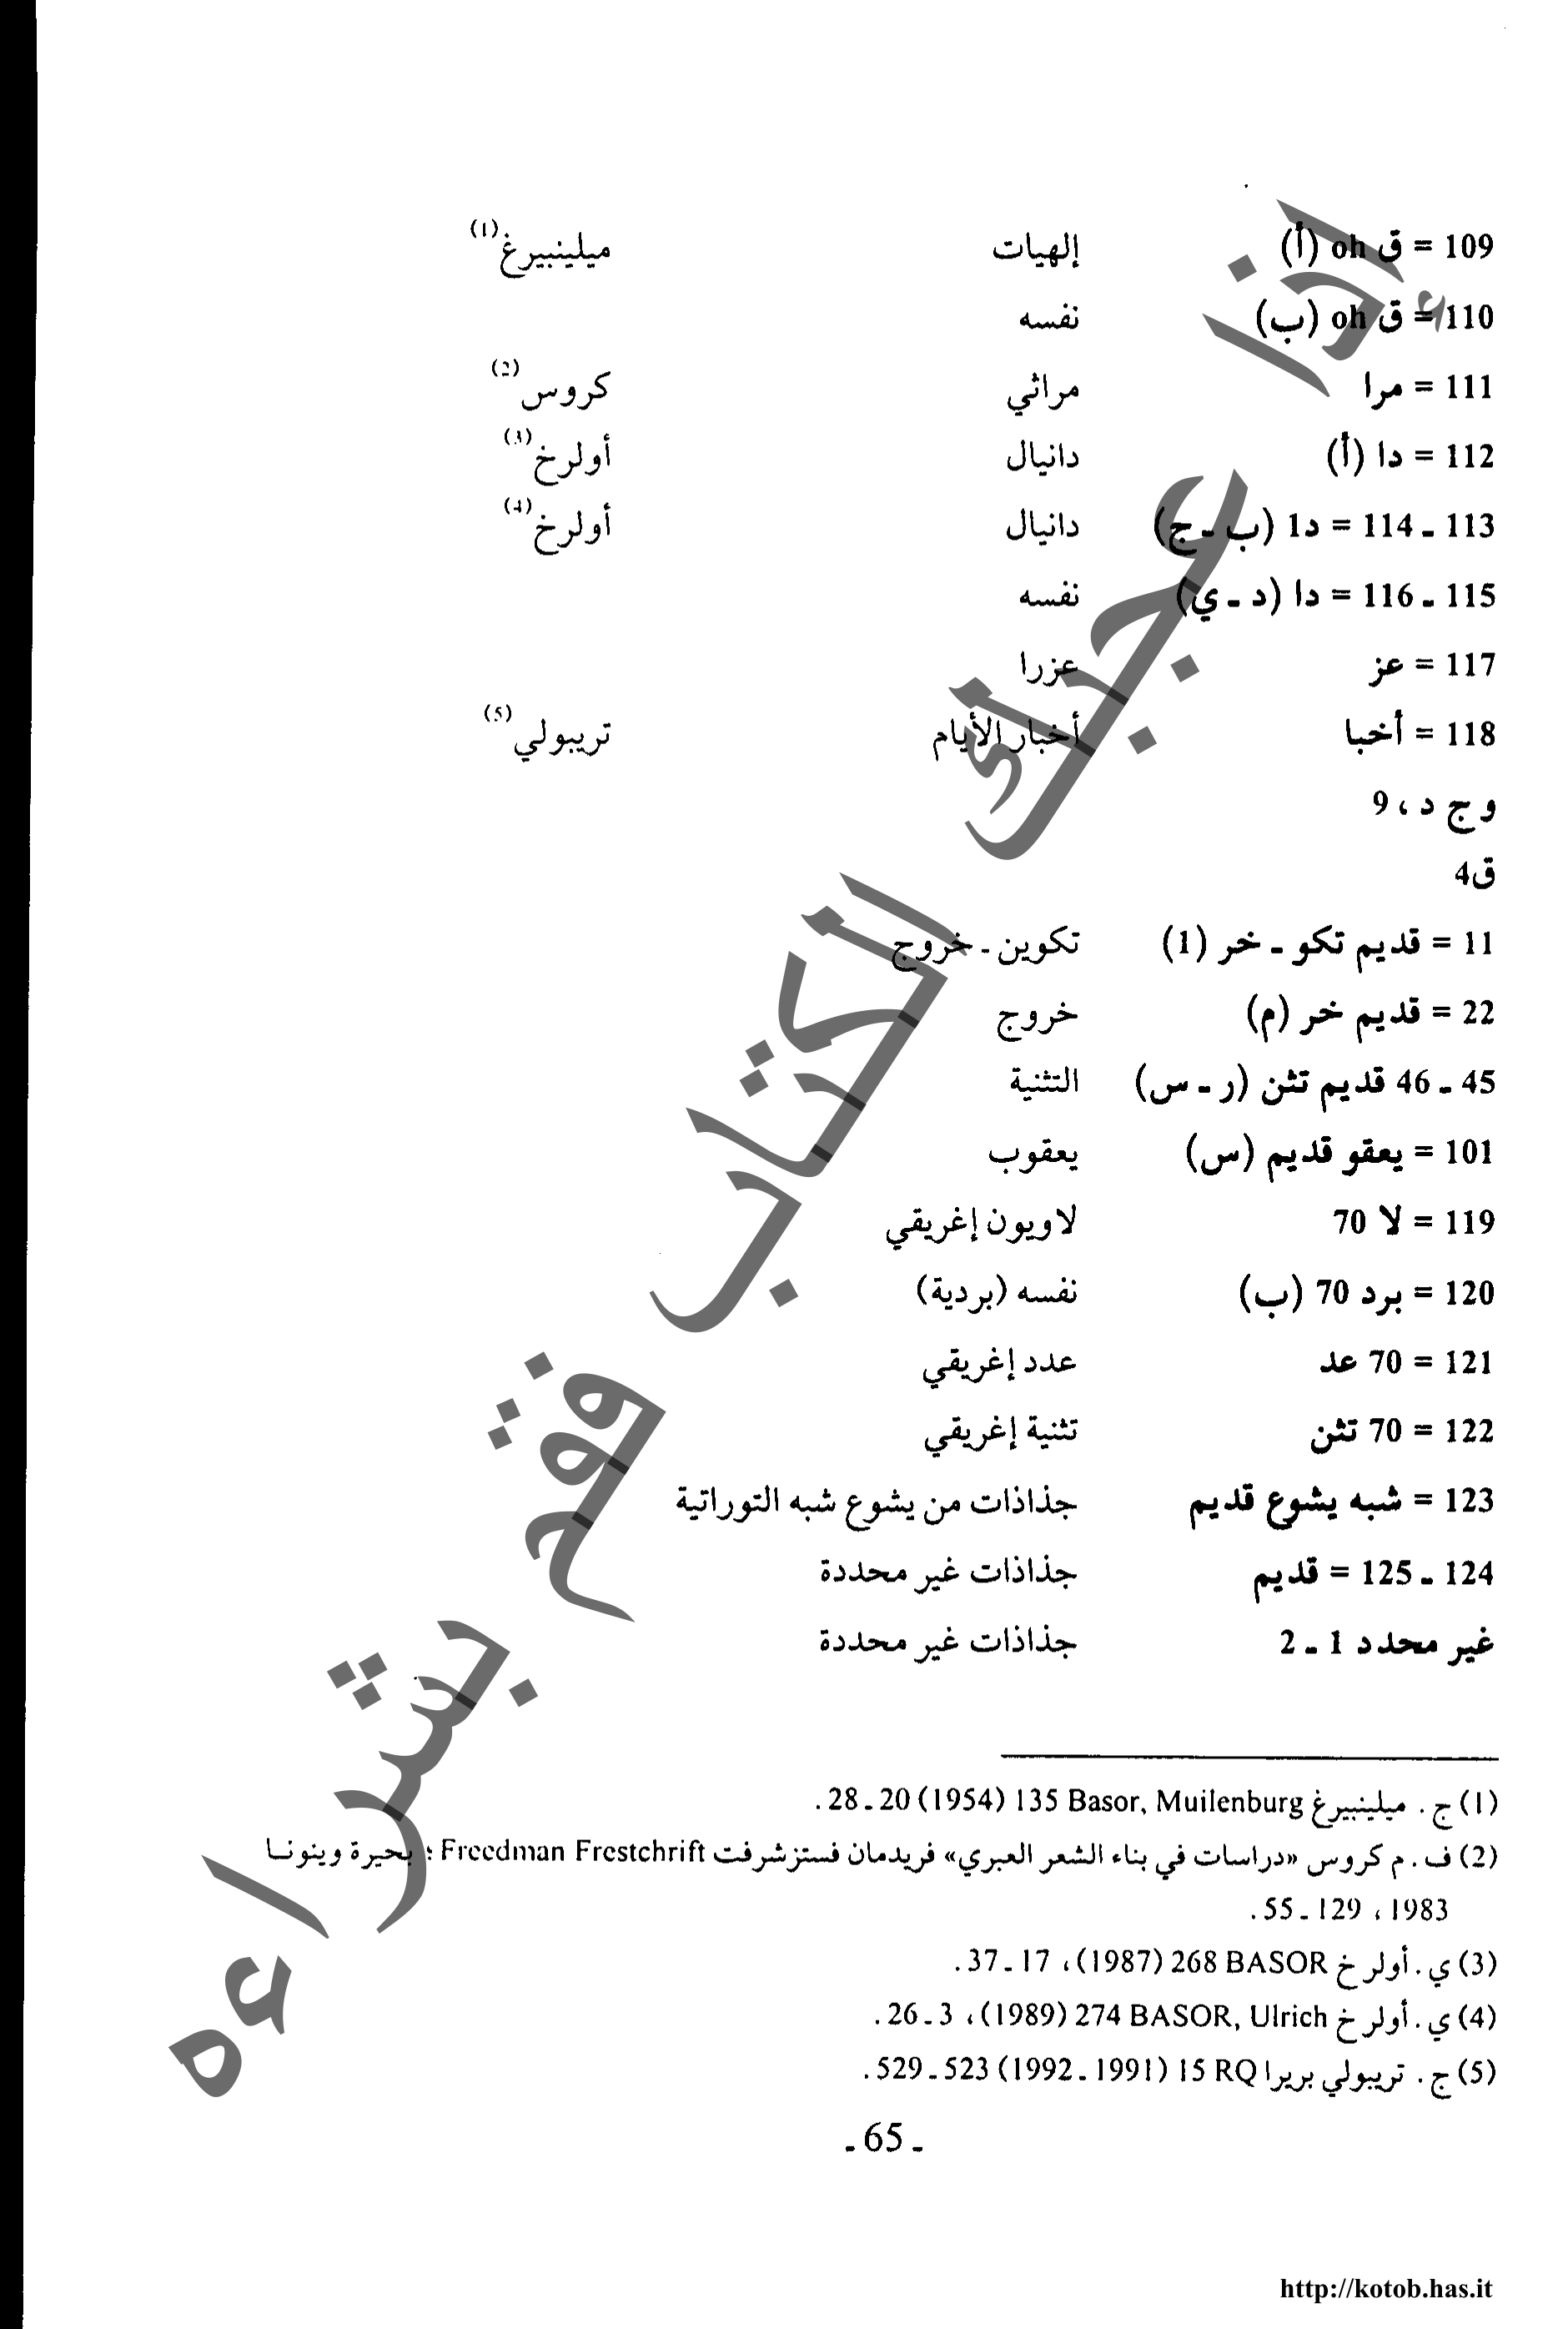 109 = ق oh (أ) إلهيات ميلينبيرغ(1)
110 = ق oh (ب) نفسه
111 = مرا مراثي كروس(2)
112 = دا (أ) دانيال أولرخ(3)
113 ـ 114 = د1 (ب ـ ج) دانيال أولرخ(4)
115 ـ 116 = دا (د ـ ي) نفسه
117 = عز عزرا
118 = أخبا أخبار الأيام تريبولي(5)
و ج د ، 9
ق4
11 = قديم تكو ـ خر (1) تكوين ـ خروج
22 = قديم خر (م) خروج
45 ـ 46 قديم تثن (ر ـ س) التثنية
101 = يعقو قديم (س) يعقوب
119 = لا 70 لاويون إغريقي
120 = برد 70 (ب) نفسه (بردية)
121 = 70 عد عدد إغريقي
122 = 70 تثن تثنية إغريقي
123 = شبه يشوع قديم جذاذات من يشوع شبه التوراتية
124 ـ 125 = قديم جذاذات غير محددة
غير محدد 1 ـ 2 جذاذات غير محددة
(1) ج . ميلينبيرغ Basor, Muilenburg 135 (1954) 20 ـ 28 .
(2) ف . م كروس «دراسات في بناء الشعر العبري» فريدمان فستزشرفت Freedman Frestchrift ؛ بحيرة وينونـا
1983 ، 129 ـ 55 .
(3) ي . أولر خ BASOR 268 (1987) ، 17 ـ 37 .
(4) ي . أولر خ BASOR, Ulrich 274 (1989) ، 3 ـ 26 .
(5) ج . تريبولي بريرا RQ 15 (1991 ـ 1992) 523 ـ 529 .
ـ 65 ـ
إذا عجبك الكتاب وقفة بشراءه
http://kotob.has.it